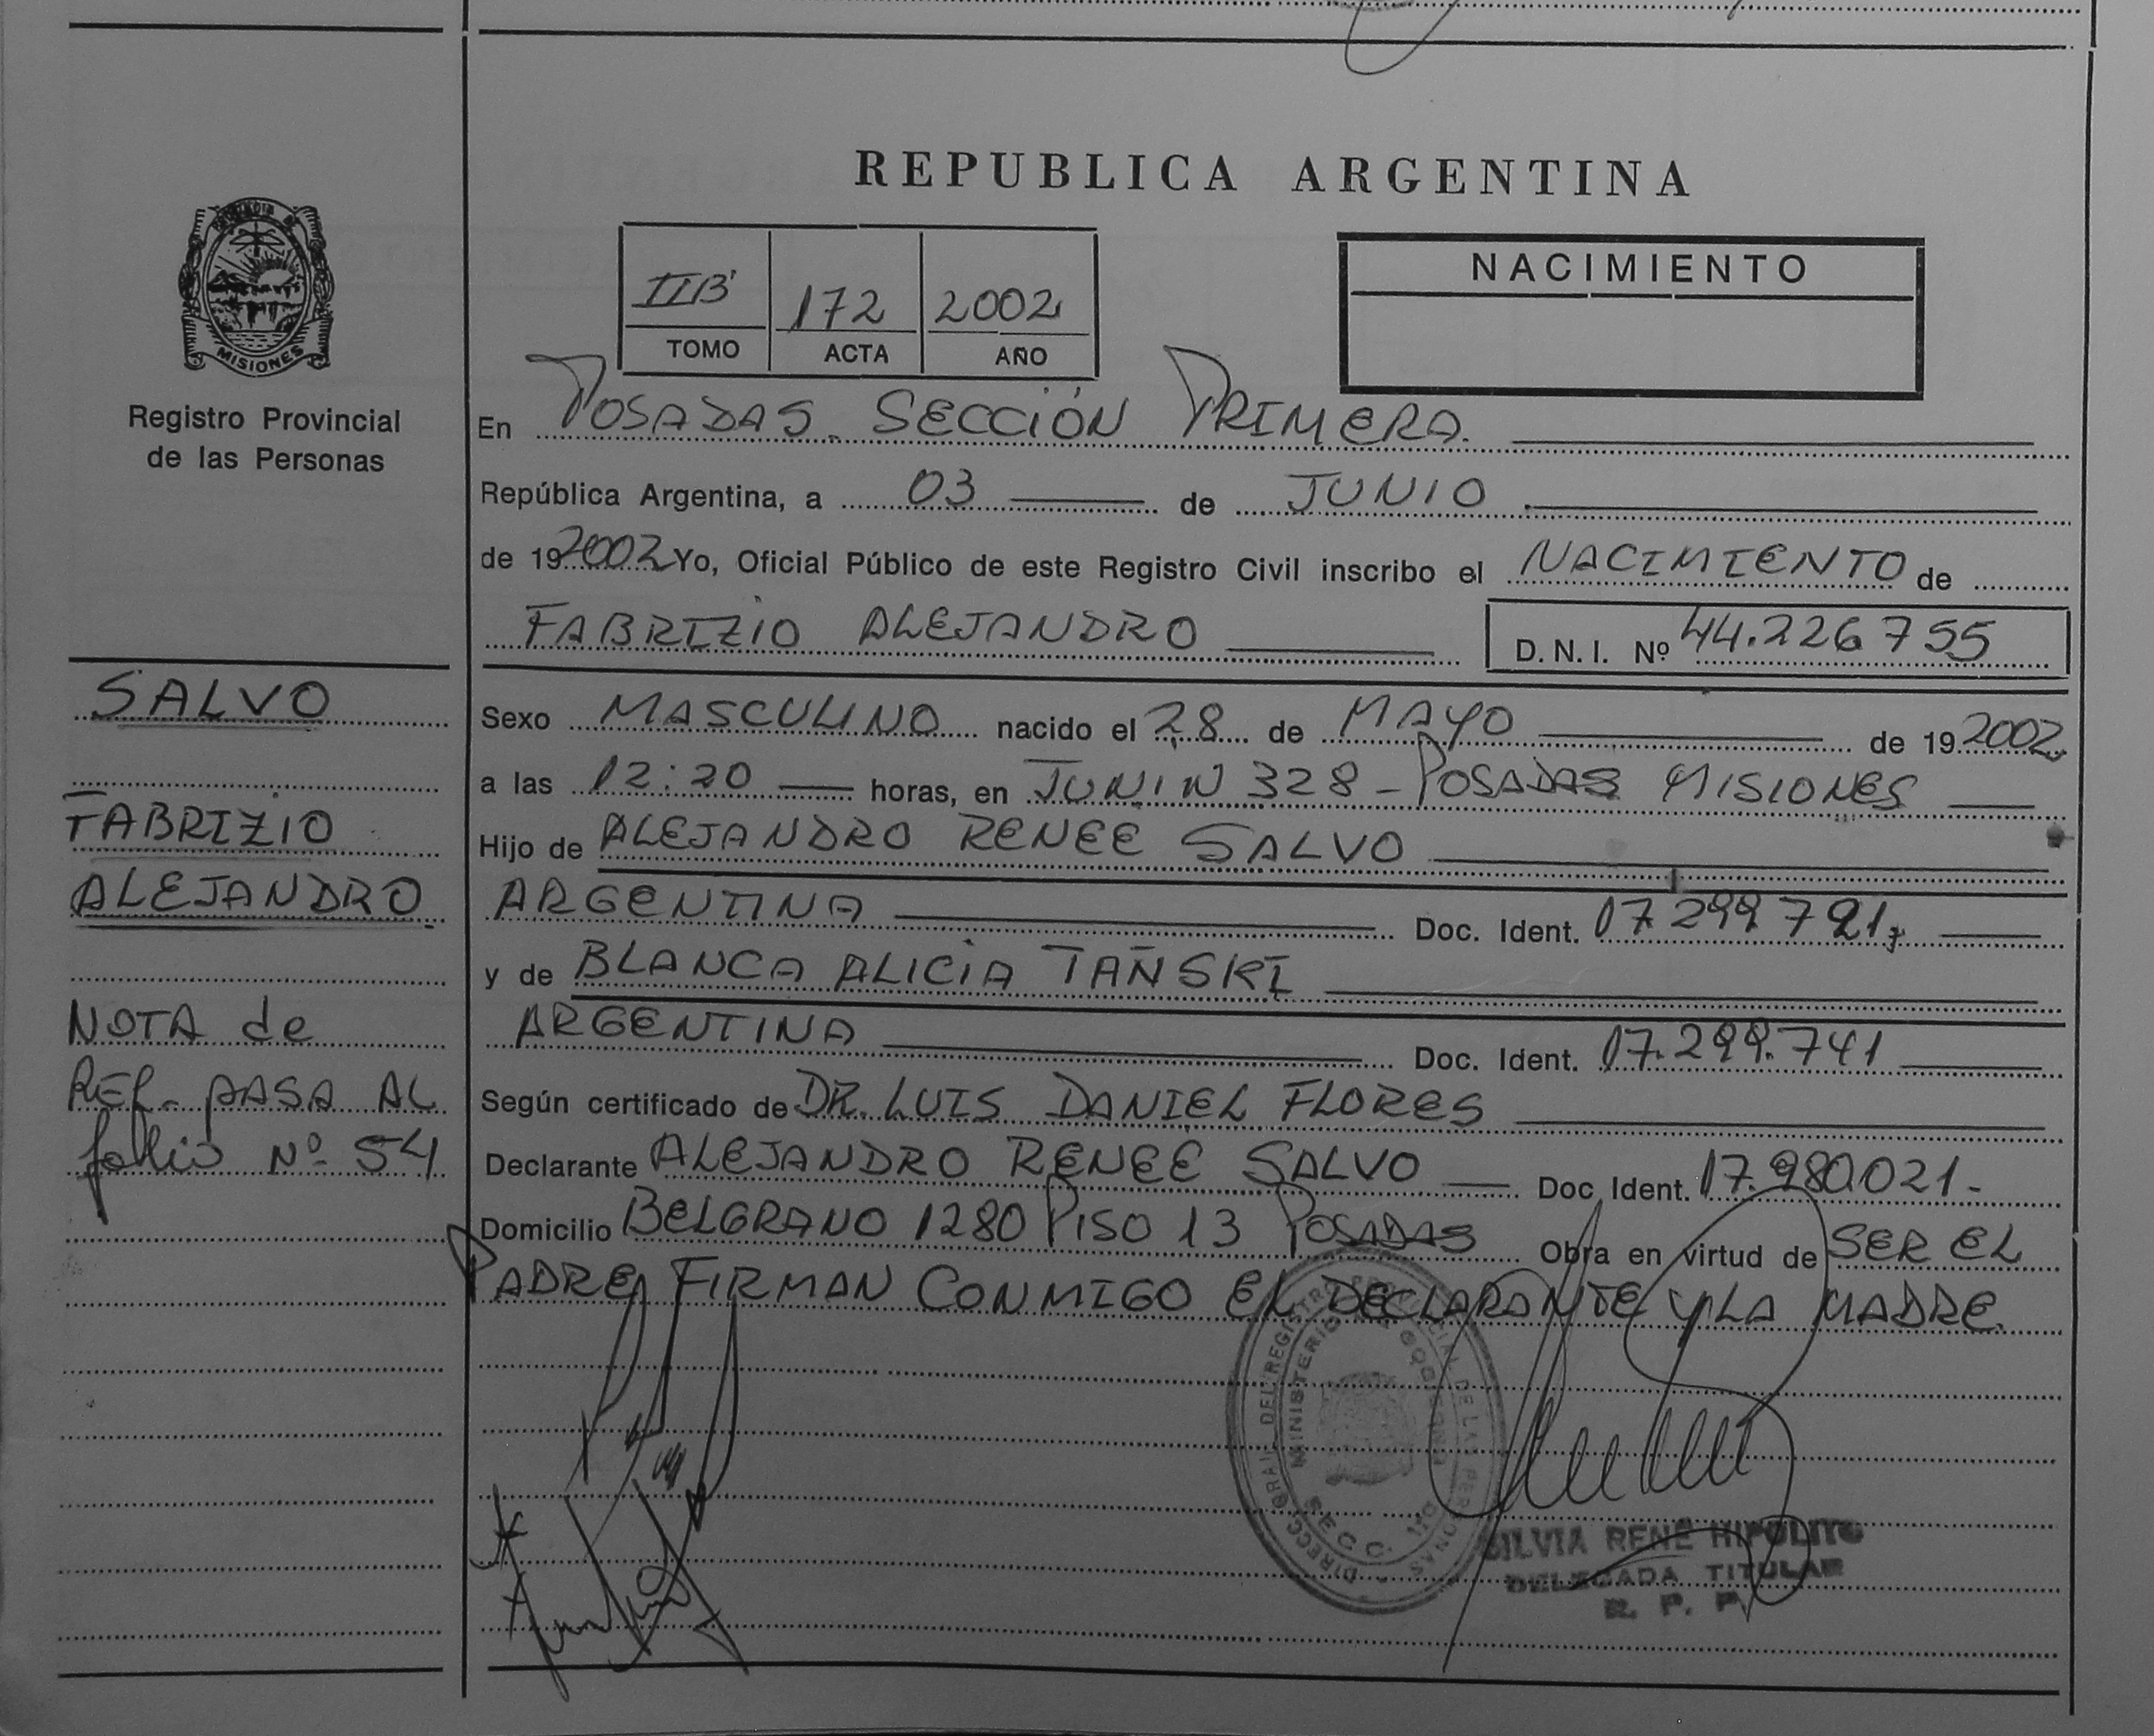 REPUBLICA ARGENTINA
PROVINCIA DE
MISIONES
Registro Provincial
de las Personas
IIB'
172
2002
TOMO
ACTA
AÑO
NACIMIENTO
En POSADAS. SECCIÓN PRIMERA.
República Argentina, a 03 de JUNIO
de 19 2002 Yo, Oficial Público de este Registro Civil inscribo el NACIMIENTO de
FABRIZIO ALEJANDRO D. N. I. Nº 44.226.755
SALVO
FABRIZIO
ALEJANDRO
NOTA de
REF. PASA AL
follio Nº 54
Sexo MASCULINO nacido el 28 de MAYO de 19 2002
a las 12:20 horas, en JUNIN 328 - POSADAS MISIONES
Hijo de ALEJANDRO RENEE SALVO
ARGENTINA Doc. Ident. 17.299.721,
y de BLANCA ALICIA TAÑSKI
ARGENTINA Doc. Ident. 17.299.741
Según certificado de DR. LUIS DANIEL FLORES
Declarante ALEJANDRO RENEE SALVO Doc. Ident. 17.980.021.-
Domicilio BELGRANO 1280 PISO 13 POSADAS Obra en virtud de SER EL
PADRE, FIRMAN CONMIGO EL DECLARANTE Y LA MADRE.
DIRECC GRAL DEL REGISTRO PROVINCIAL DE LAS PERSONAS
MINISTERIO DE GOBIERNO
SECC. 1ra
SILVIA RENÉ HIPOLITO
DELEGADA TITULAR
R. P. P.